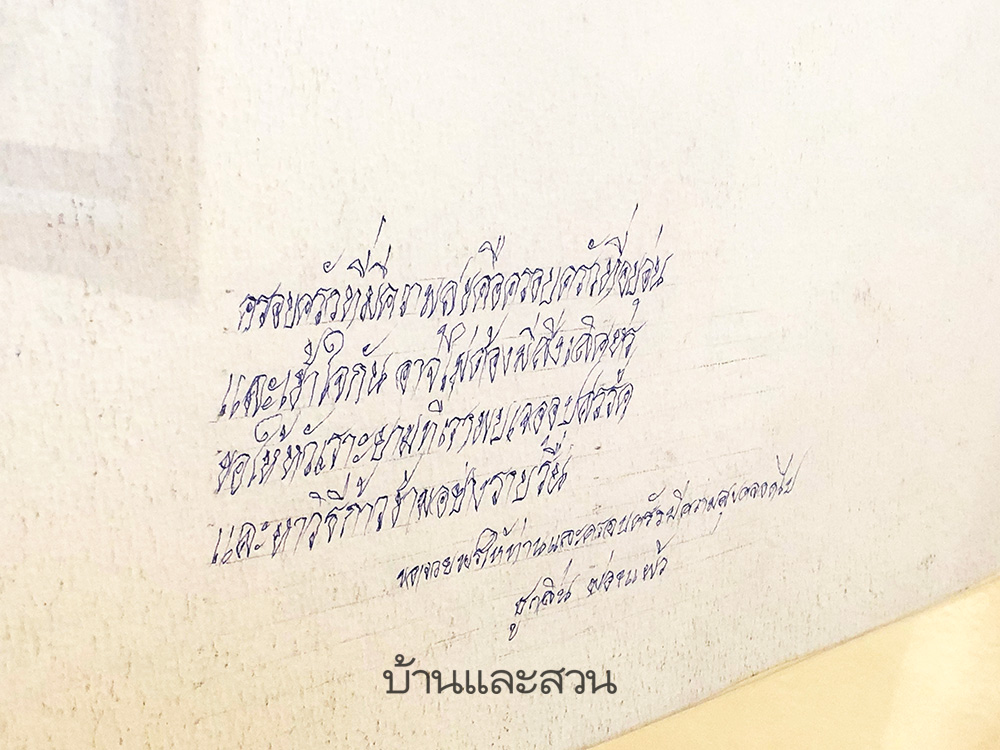 ครอบครัวที่มีความสุขคือครอบครัวที่อบอุ่น
และเข้าใจกัน อาจไม่ต้องมีสิ่งเลิศหรู
ขอให้หัวเราะยามที่เราพบเจออุปสรรค
และหาวิธีก้าวข้ามอย่างราบรื่น
ขออวยพรให้ท่านและครอบครัวมีความสุขตลอดไป
ชูกลิ่น ผ่องแผ้ว
บ้านและสวน